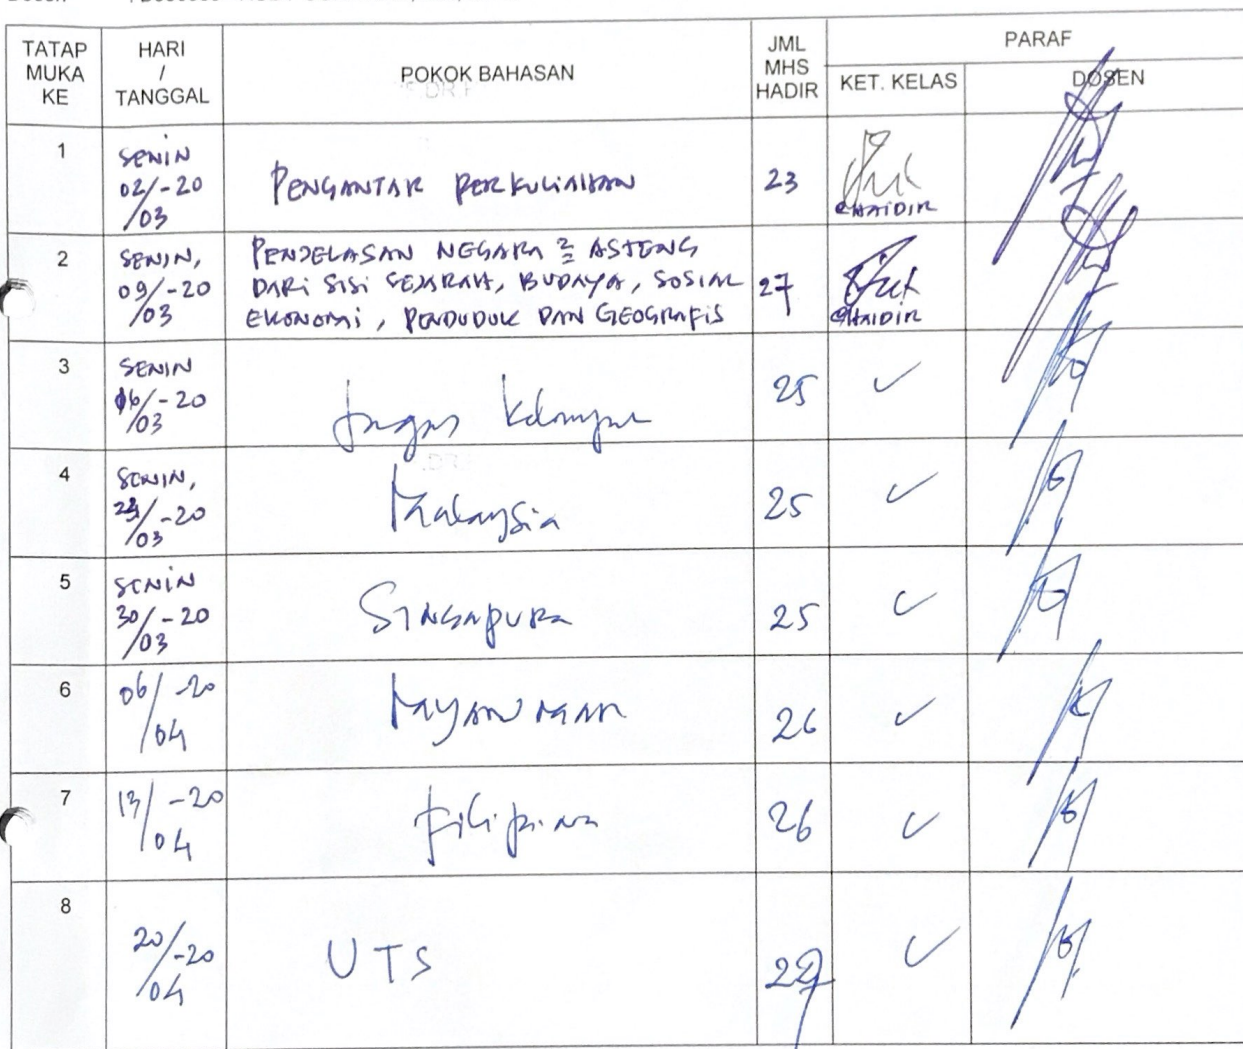 TATAP MUKA KE
HARI / TANGGAL
POKOK BAHASAN
JML MHS HADIR
PARAF
KET. KELAS
DOSEN
1
SENIN 02/03-20
PENGANTAR PERKULIAHAN
23
CHAIDIR
2
SENIN, 09/03-20
PENJELASAN NEGARA 2 ASTENG
DARI SISI SEJARAH, BUDAYA, SOSIAL
EKONOMI, PENDUDUK DAN GEOGRAFIS
27
CHAIDIR
3
SENIN 16/03-20
Tugas Kelompok
25
✓
4
SENIN, 23/03-20
Malaysia
25
✓
5
SENIN 30/03-20
Singapura
25
✓
6
06/04-20
Myanmar
26
✓
7
13/04-20
Filipina
26
✓
8
20/04-20
UTS
✓